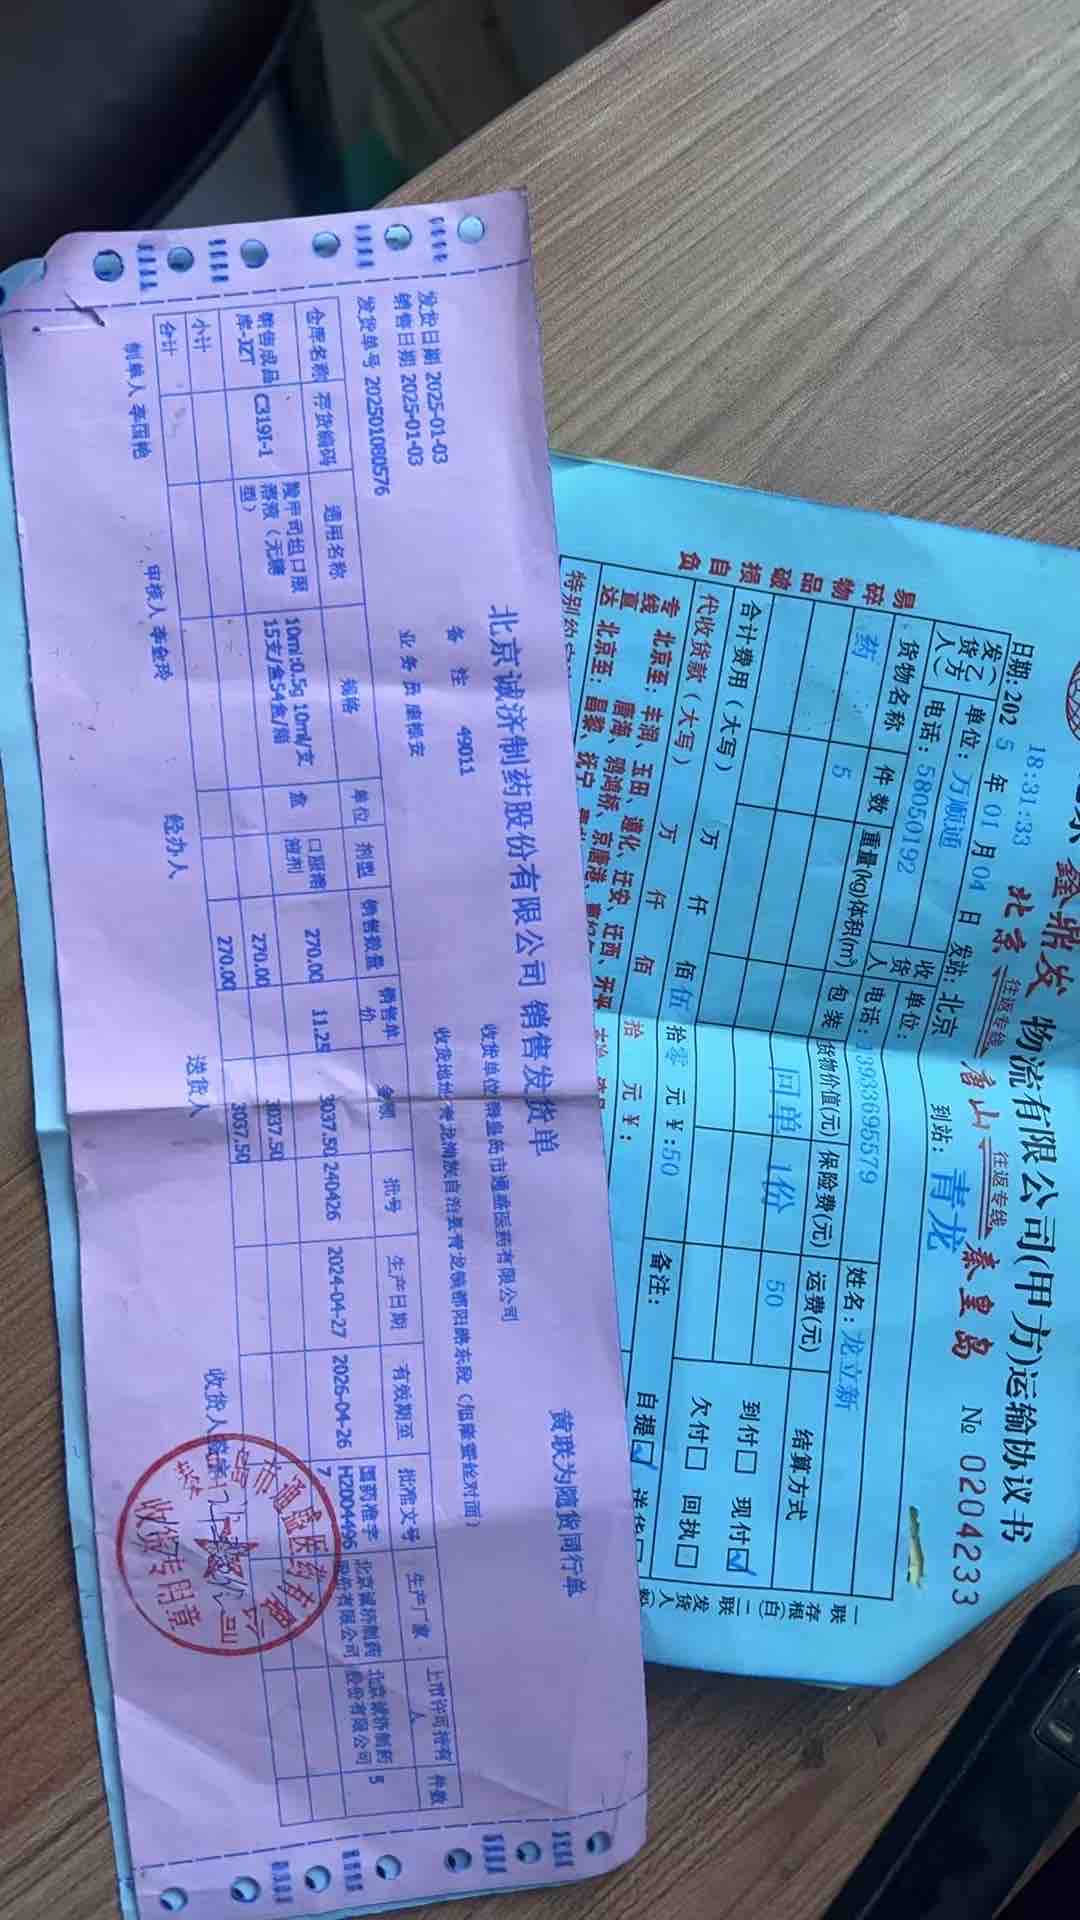 北京诚济制药股份有限公司 销售发货单
黄联为随货同行单
发货日期 2025-01-03
备 注 49011
收货单位 秦皇岛市通盛医药有限公司
销售日期 2025-01-03
业 务 员
收货地址 青龙满族自治县青龙镇都阳路东段
发货单号 202501080576
仓库名称 存货编码 通用名称 规格 单位 剂型 销售数量 销售单价 金额 批号 生产日期 有效期至 批准文号 生产厂家 上市许可持有人 件数
销售成品库-JZT C319I-1 羧甲司坦口服溶液（无糖型） 10ml:0.5g 10ml/支 15支/盒54盒/箱 盒 口服溶液剂 270.00 11.25 3037.50 240426 2024-04-27 2026-04-26 国药准字H20044967 北京诚济制药股份有限公司 北京诚济制药股份有限公司 5
小计 270.00 3037.50
合计 270.00 3037.50
制单人 李国艳 审核人 李金玲 经办人 送货人 收货人签字
秦皇岛市通盛医药有限公司
收货专用章
鑫鼎发 物流有限公司(甲方)运输协议书
18:31:33 北京 往返专线 唐山 往返专线 秦皇岛 № 0204233
日期:2025 年 01 月 04 日 发站: 北京 到站: 青龙
发货人(乙方) 单位: 万顺通 收货人 单位:
电话: 58050192 电话: 13933695579 姓名: 龙立新
货物名称 件数 重量(kg) 体积(m³) 包装 货物价值(元) 保险费(元) 运费(元) 结算方式
药 5 回单 1份 50
到付□ 现付☑
欠付□ 回执□
合计费用（大写） 万 仟 佰 伍 拾 零 元 ¥:50
代收货款（大写） 万 仟 佰 拾 元 ¥:
备注: 自提☑ 送货□
专线直达 北京至: 丰润、玉田、遵化、迁安、迁西、开平
北京至: 唐海、鸦鸿桥、京唐港
北京至: 昌黎、抚宁
特别约定
易碎物品破损自负
一联存根(白) 二联发货人